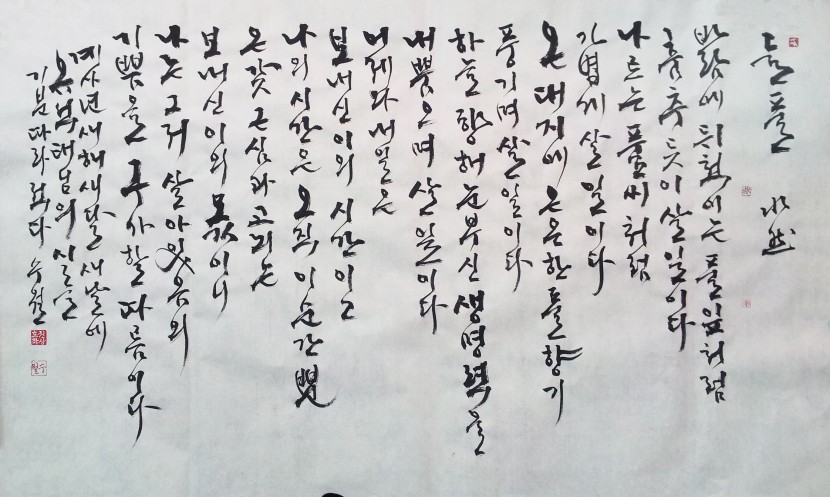 들풀 水然
바람에 뒤척이는 풀잎처럼
춤추듯이 살 일이다
나르는 풀씨처럼
가볍게 살 일이다
온 대지에 은은한 풀향기
풍기며 살 일이다
하늘 향해 눈부신 생명력을
내뿜으며 살 일이다
어제와 내일은
보내신 이의 시간이고
나의 시간은 오직 이 순간뿐
온갖 근심과 고뇌는
보내신 이의 몫이니
나는 그저 살아있음의
기쁨을 구가할 따름이다
계사년 새해 새달 새날에
님의 시를
기분따라 수월